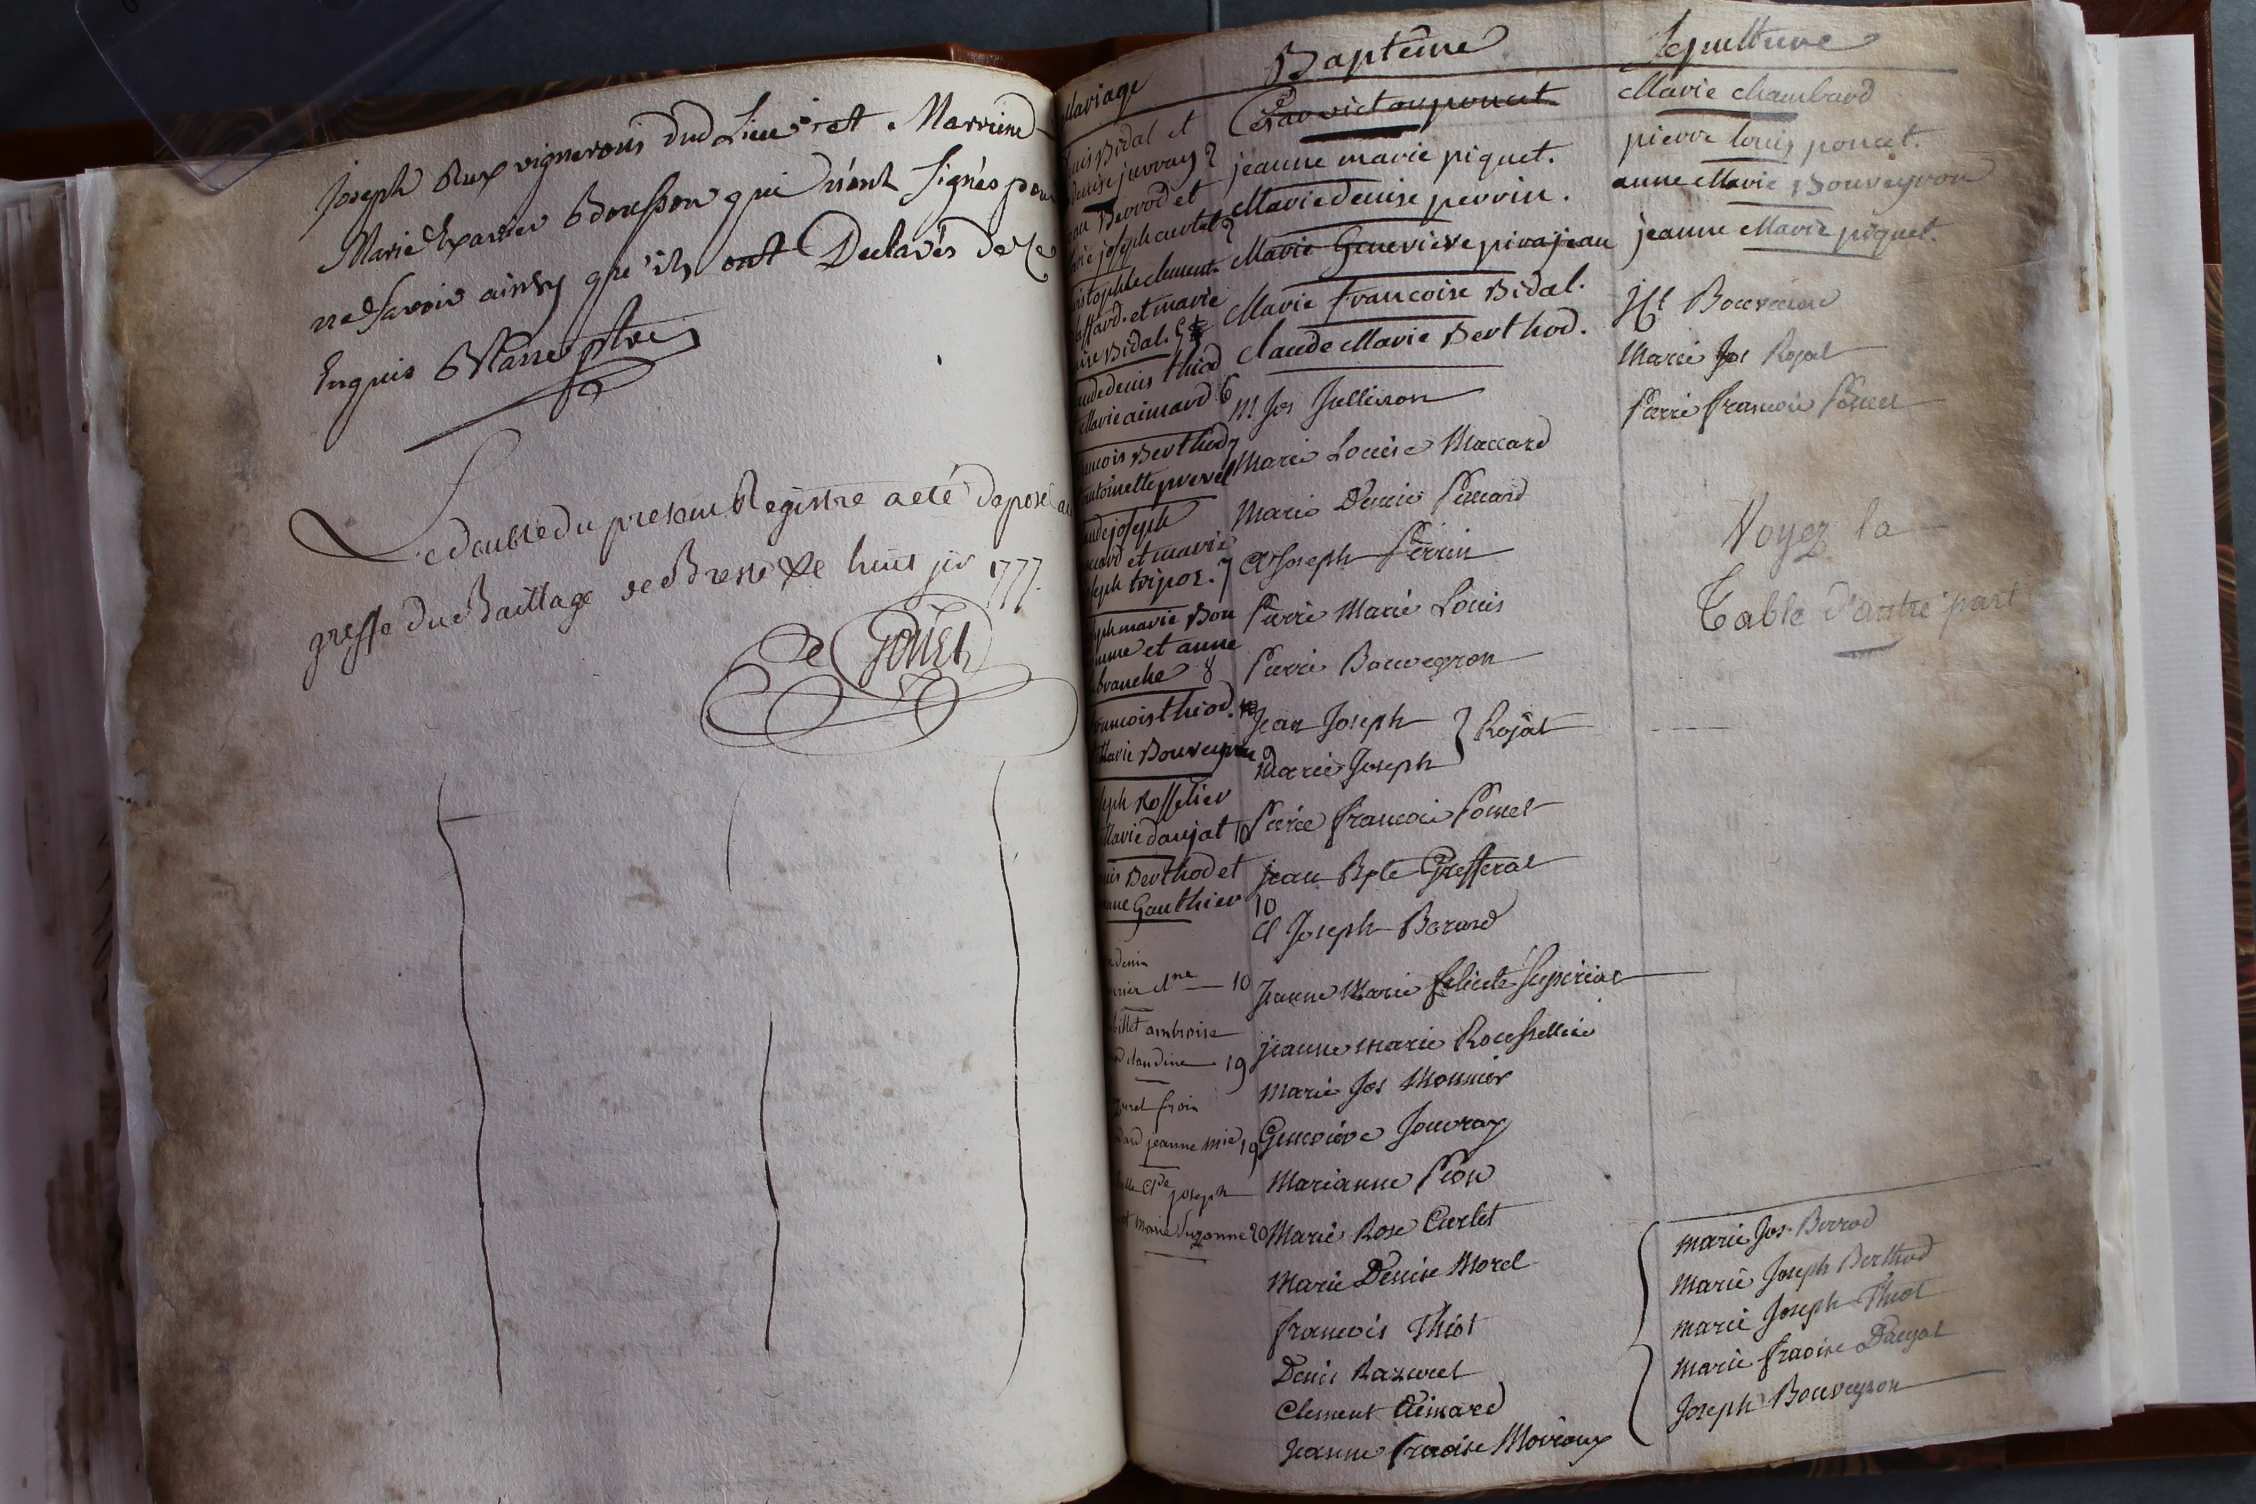 Joseph Bux vignerons dud Lieu et Marrine
Marie Xavier Bousson qui n'ont signés pour
ne Savoir ainsy qu'ils ont Declarés de Ce
Enquis
Le double du present Registre a eté deposé au
greffe du Bailliage de Bresse le huit jer 1777.
Goüet
Mariage
Bidal et
denise juvray 2
Berrod et
joseph curtet 2
clement
et marie
Bidal. 5
denis thiod
Marie aimard 6
Berthod 7
antoinette
joseph
et marie
tripoz. 7
marie Bon
et anne
branche 8
francois thiod.
Marie Bouveyron 9
Rosselier
Marie daujat 10
Berthod et
Gauthier 10
denis
10
billet ambroise
claudine 19
frois
jeanne mie 19
Cde joseph
marie Suzanne 20
Baptême
jeanne marie piquet.
Marie denise perrin.
Marie Genevieve pirajean
Marie francoise Bidal.
claude Marie Berthod.
M Jos Jullieron
Marie Louise Maccard
Marie Denise
Cl Joseph Perrin
Pierre Marie Louis
Pierre Bouveyron
Jean Joseph } Rojat
Marie Joseph
Pierre francois Poncet
jean Bpte Gresserat
Cl Joseph Berard
Jeanne Marie felicité
jeanne marie Rousselliere
Marie Jos Monnier
Genevieve Jouvray
Marianne Pion
Marie Rose Curlet
Marie Denise Morel
francois Thiot
Denis Razurel
Clement Aimard
Jeanne fracoise Moiroux
Sepulture
Marie Chambard
pierre louis poncet.
anne Marie Bouveyron
jeanne Marie piquet.
Marie Jos Rojat
Pierre francois Poncet
Voyez la
Table d'autre part
marie Jos. Berrod
Marie Joseph Berthod
marie Joseph Thiot
Marie fracoise Daujat
Joseph Bouveyron